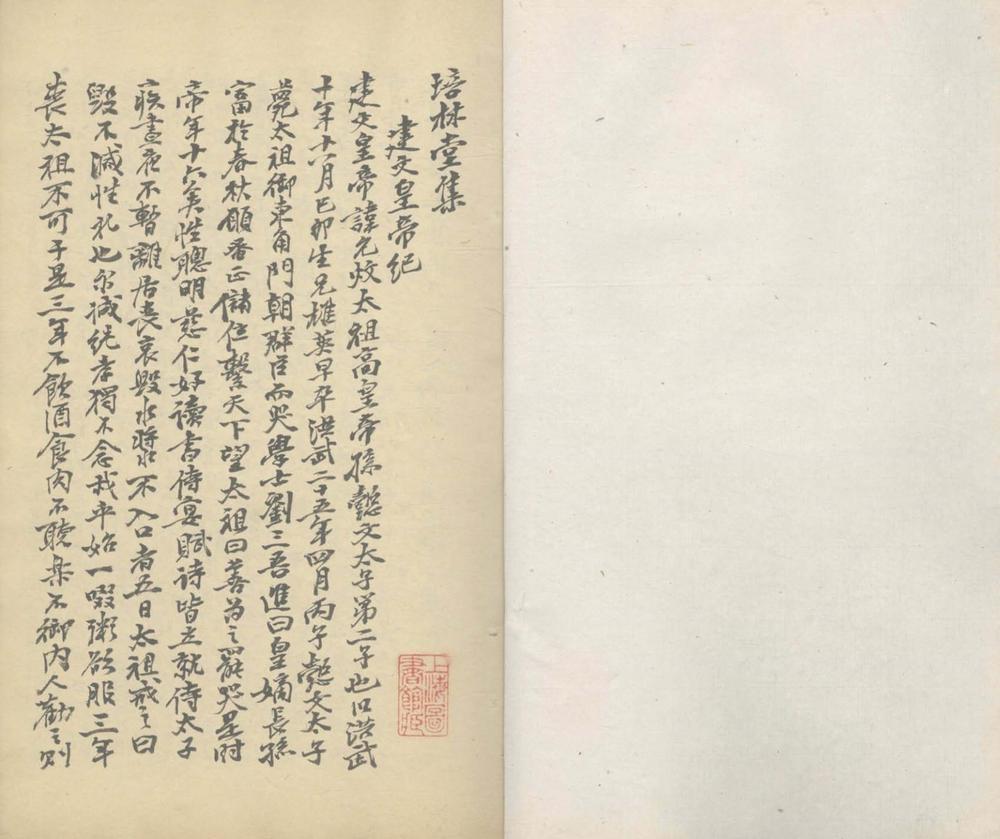 培林堂集
建文皇帝紀
建文皇帝諱允炆太祖高皇帝孫懿文太子第二子也以洪武
十年十一月己卯生兄雄英早卒洪武二十五年四月丙子懿文太子
薨太祖御東角門朝群臣而哭學士劉三吾進曰皇嫡長孫
富於春秋願蚤正儲位繫天下望太祖曰善為之罷哭是時
帝年十六矣性聰明慈仁好讀書侍宴賦詩皆立就侍太子
疾晝夜不暫離居喪哀毀水漿不入口者五日太祖戒之曰
毀不滅性礼也尔誠純孝獨不念我乎始一啜粥欲服三年
喪太祖不可于是三年不飲酒食肉不聽樂不御內人勸之則
上海圖書館藏